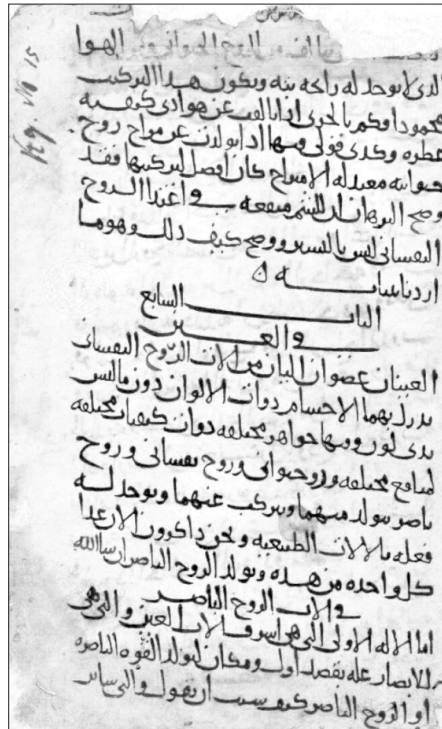 الذي لا يوجد له رائحه بته ويكون هذا التركيب
محمودا وكم بالحرى اذا تالف عن هواذى كيفيه
عطره وكذى قولى ومها اذا تولدت عن مزاج روح
حيوانيه معتدله الامتزاج كان افضل لتركيبها فقد
وضح البرهان ان للشم منفعه في اغتذا الروح
النفساني ليس باليسير ووضح كيف ذلك وهو ما
اردنا بيانـه
البـاب السابع
في العيـن
العينان عضوان اليان من الات الروح النفساني
يدرك بهما الاجسام ذوات الالوان دون ما ليس
بذى لون وفيهما جواهر مختلفه ذوات كيفيات مختلفه
لمنافع مختلفه وروح حيوانى وروح نفسانى وروح
باصر يتولد فيهما ويتركب عنهما ويوجد لـه
فعله بالالات الطبيعيه ونحن ذاكرون الان غذا
كل واحده من هذه وتولد الروح الباصر ان شا الله
في الات الروح الباصر
اما الاله الاولى التى هى اشرف الات العين والتى هى
للابصار عله بقصد اول ومكان لتولد القوه الباصره
او الروح الباصر كيف شيت ان تقول والتى ساير